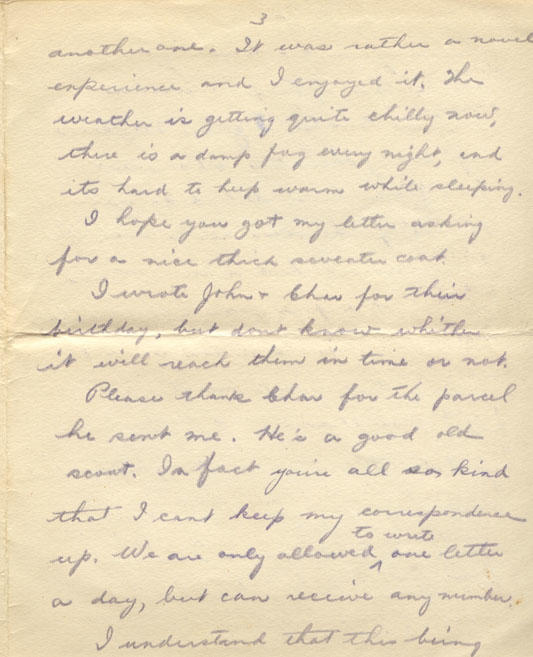 3
another one. It was rather a novel
experience and I enjoyed it. The
weather is getting quite chilly now,
there is a damp fog every night, and
its hard to keep warm while sleeping.
I hope you got my letter asking
for a nice thick sweater coat.
I wrote John + Chas for their
birthday, but dont know whither
it will reach them in time or not.
Please thank Chas for the parcel
he sent me. He's a good old
scout. In fact you're all so kind
that I cant keep my correspondence
to write
up. We are only allowed ^ one letter
a day, but can receive any number.
I understand that this being